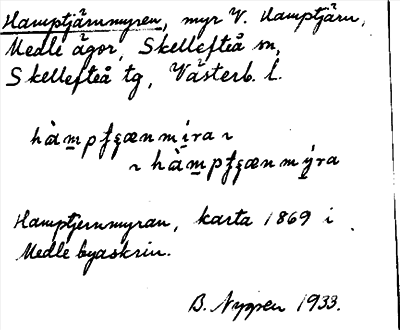 Hamptjärnmyren, myr V. Hamptjärn,
Medle ägor, Skellefteå sn,
Skellefteå tg, Västerb. l.
hàm̲pʄʂænmi̲ra ~
~ hàm̲pʄʂænmy̲ra
Hamptjernmyran, karta 1869 i
Medle byaskrin.
B. Nyppen 1933.